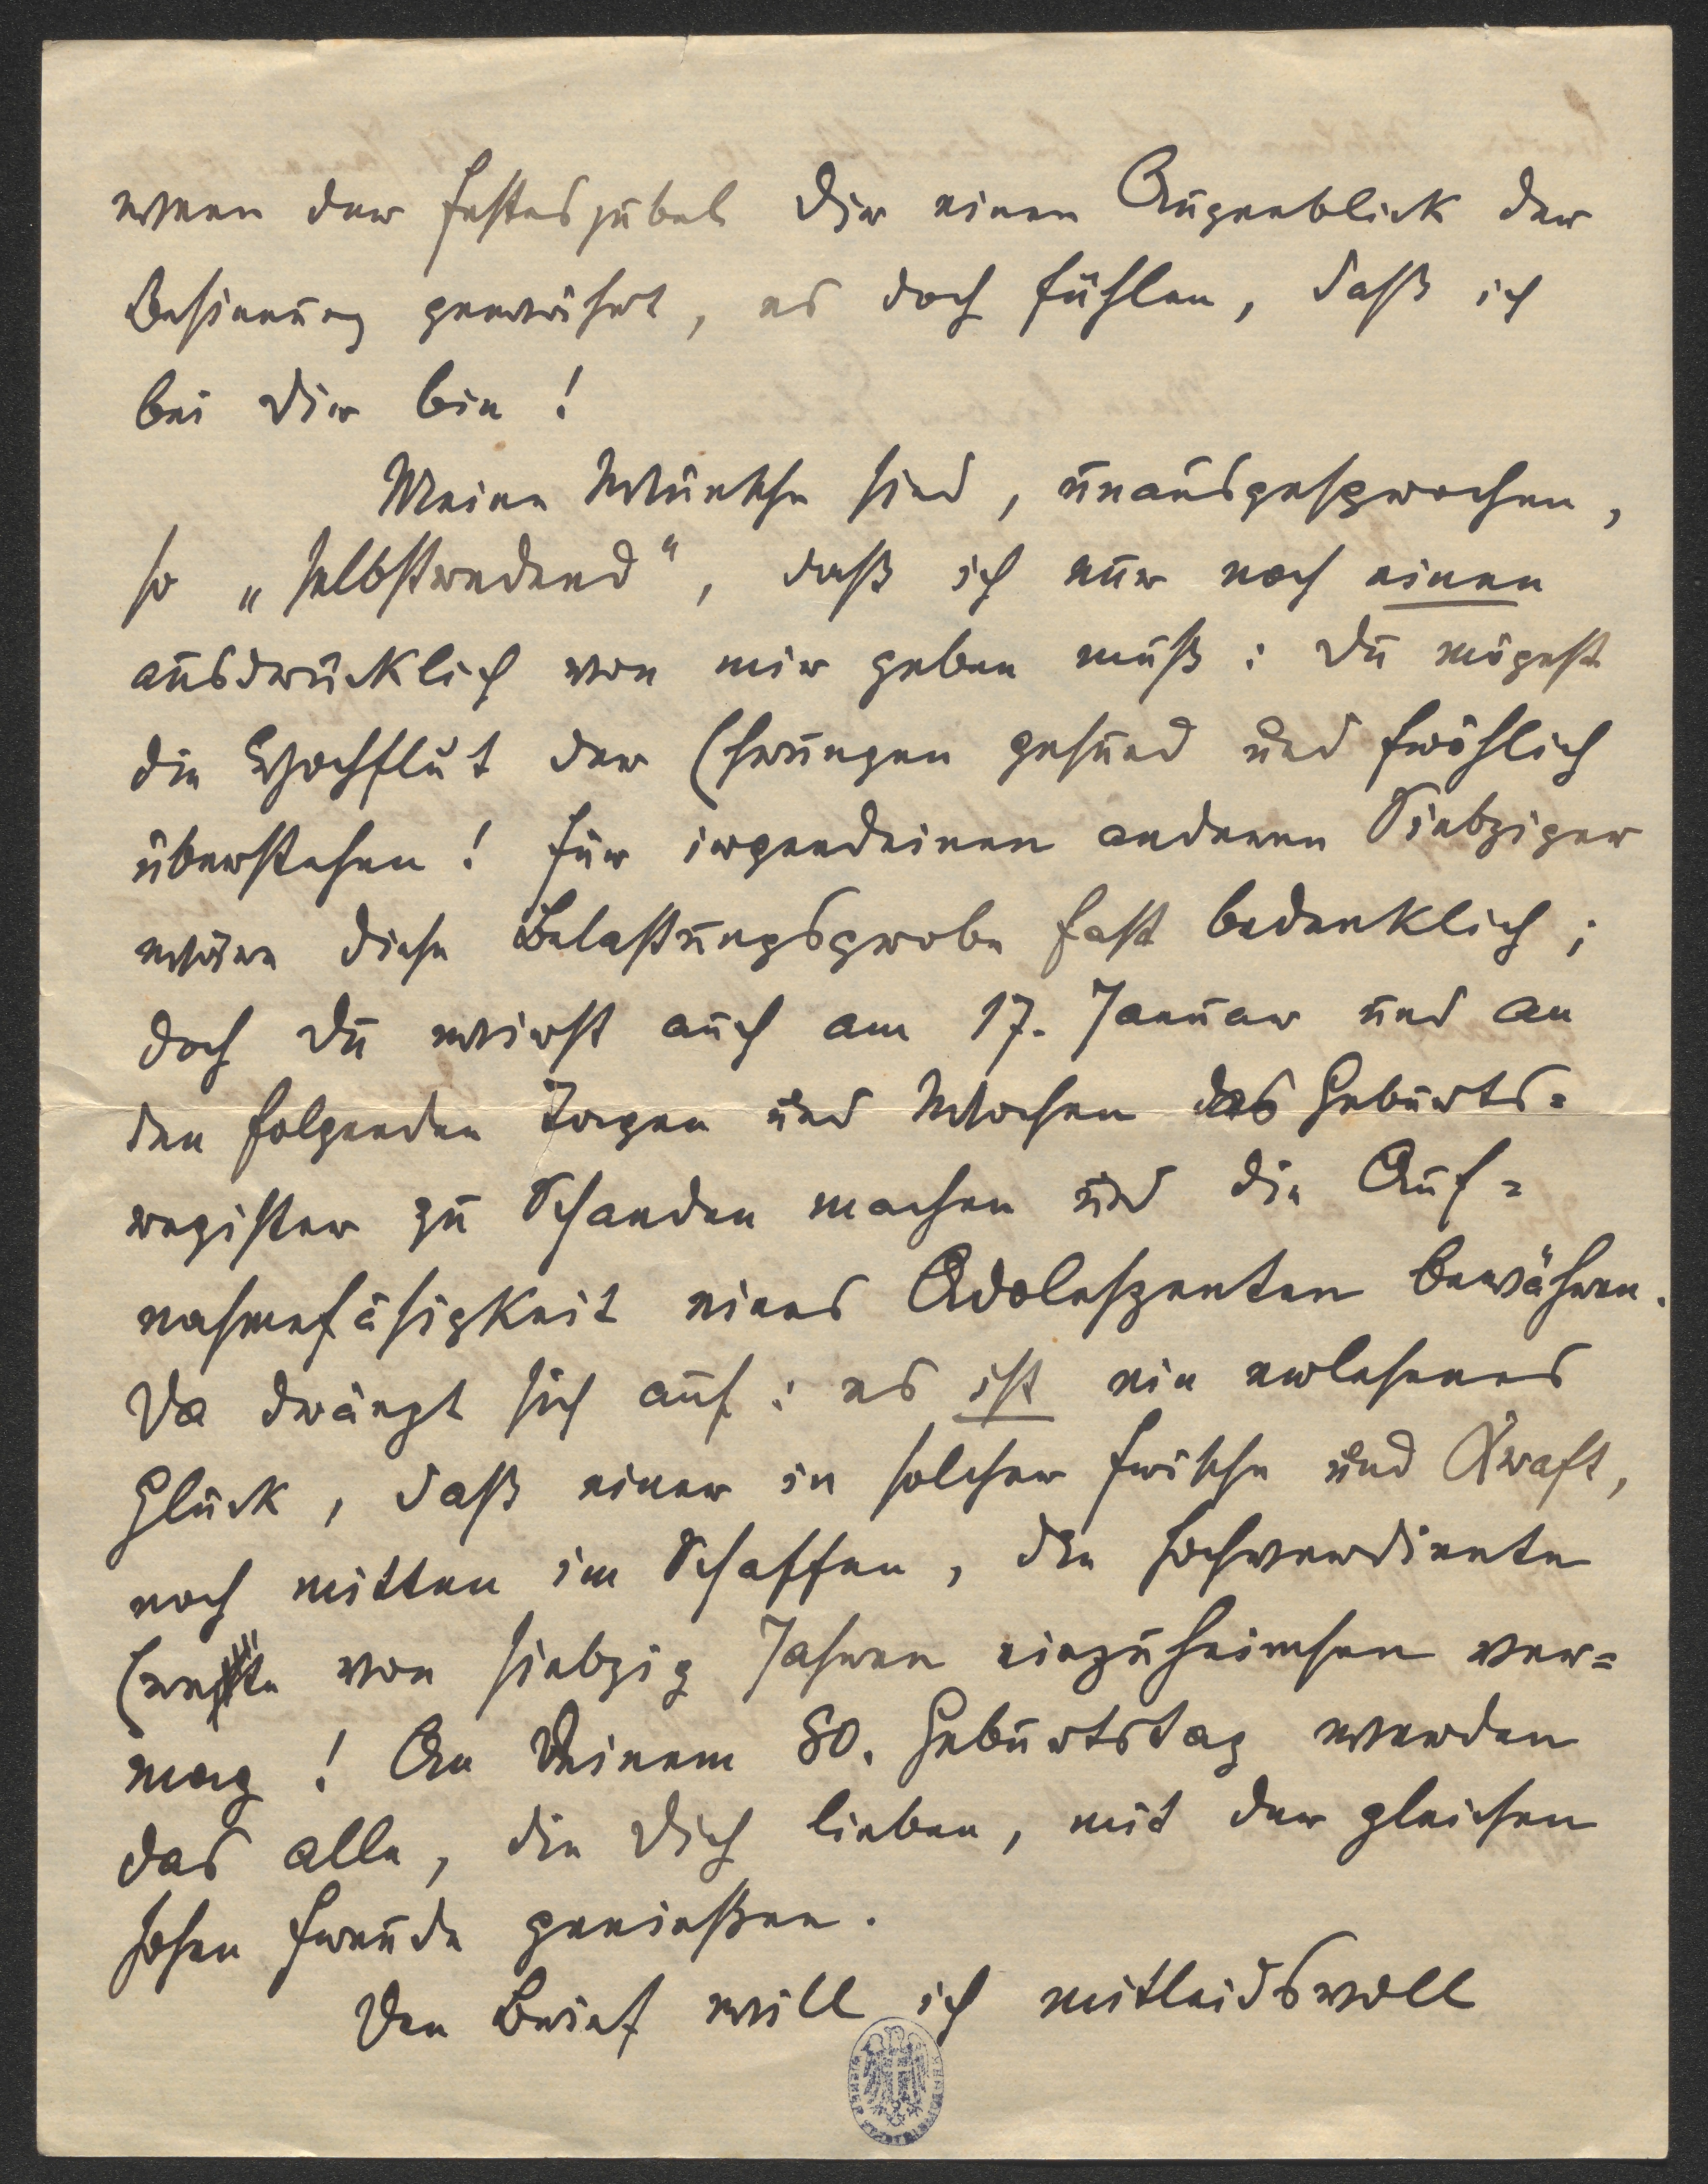 wenn der Festesjubel Dir einen Augenblick der
Besinnung gewährt, es doch fühlen, daß ich
bei Dir bin!
Meine Wünsche sind, unausgesprochen,
so „selbstredend“, daß ich nur noch einen
ausdrücklich von mir geben muß: Du mögest
die Hochflut der Ehrungen gesund und fröhlich
überstehen! Für irgendeinen anderen Siebziger
wäre diese Belastungsprobe fast bedenklich;
doch Du wirst auch am 17. Januar und an
den folgenden Tagen und Wochen das Geburts=
register zu Schanden machen und die Auf=
nahmefähigkeit eines Adoleszenten bewähren.
Da drängt sich auf: es ist ein erlesenes
Glück, daß einer in solcher Frische und Kraft,
noch mitten im Schaffen, die hochverdiente
Ernte von siebzig Jahren einzuheimsen ver=
mag! An Deinem 80. Geburtstag werden
das alle, die Dich lieben, mit der gleichen
hohen Freude genießen.
Den Brief will ich mitleidsvoll